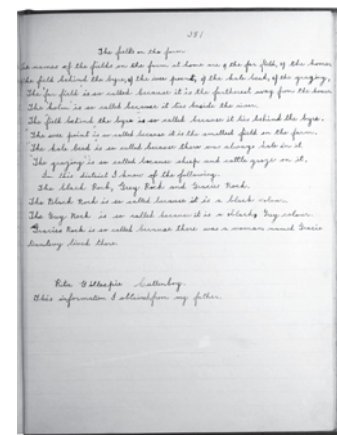 281
The fields on the farm
The names of the fields on the farm at home are of the far field, of the
the field behind the byre, of the wee point, of the kale beds, of the grazing,
The "far field" is so called because it is the furtherest way from the house
The "holm" is so called because it lies beside the river.
The "field behind the byre" is so called because it lies behind the byre.
"The wee point" is so called because it is the smallest field on the farm.
The kale beds is so called because there was always kale in it.
"The grazing" is so called because sheep and cattle graze on it.
In this district I know of the following.
The black Rock, Grey Rock and Gracies Rock.
The Black Rock is so called because it is a black colour.
The Grey Rock is so called because it is a Grey colour.
Gracies Rock is so called because there was a woman named Gracie
lived there.
Rita Gillespie
This information I obtained from my father.